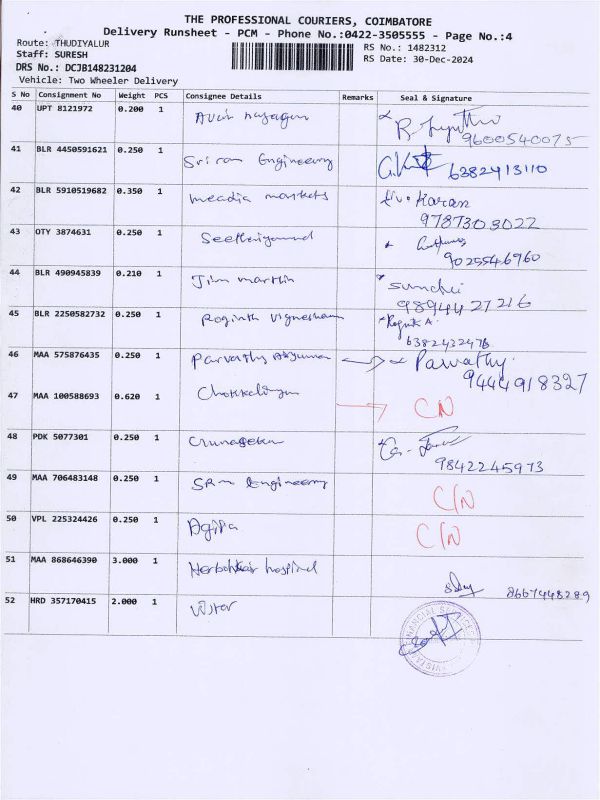 THE PROFESSIONAL COURIERS, COIMBATORE
Delivery Runsheet - PCM - Phone No.:0422-3505555 - Page No.:4
Route: THUDIYALUR
Staff: SURESH
DRS No.: DCJB148231204
Vehicle: Two Wheeler Delivery
RS No.: 1482312
RS Date: 30-Dec-2024
S No Consignment No Weight PCS Consignee Details Remarks Seal & Signature
40 UPT 8121972 0.200 1
9600540075
41 BLR 4450591621 0.250 1 Sri ram Engineering
6382413110
42 BLR 5910519682 0.350 1 meadia markets Karan
9787303022
43 OTY 3874631 0.250 1
9025546960
44 BLR 490945839 0.210 1 Jim marthin
9894427216
45 BLR 2250582732 0.250 1 Roginth Vigneshwaran Roginth A.
6382432476
46 MAA 575876435 0.250 1 Parvathy Parvathy.
9444918327
47 MAA 100588693 0.620 1 Chokkalingam CN
48 PDK 5077301 0.250 1
9842245973
49 MAA 706483148 0.250 1 SRM Engineering C/N
50 VPL 225324426 0.250 1 Agipa C/N
51 MAA 868646390 3.000 1 hospital
8667448289
52 HRD 357170415 2.000 1 Vistar